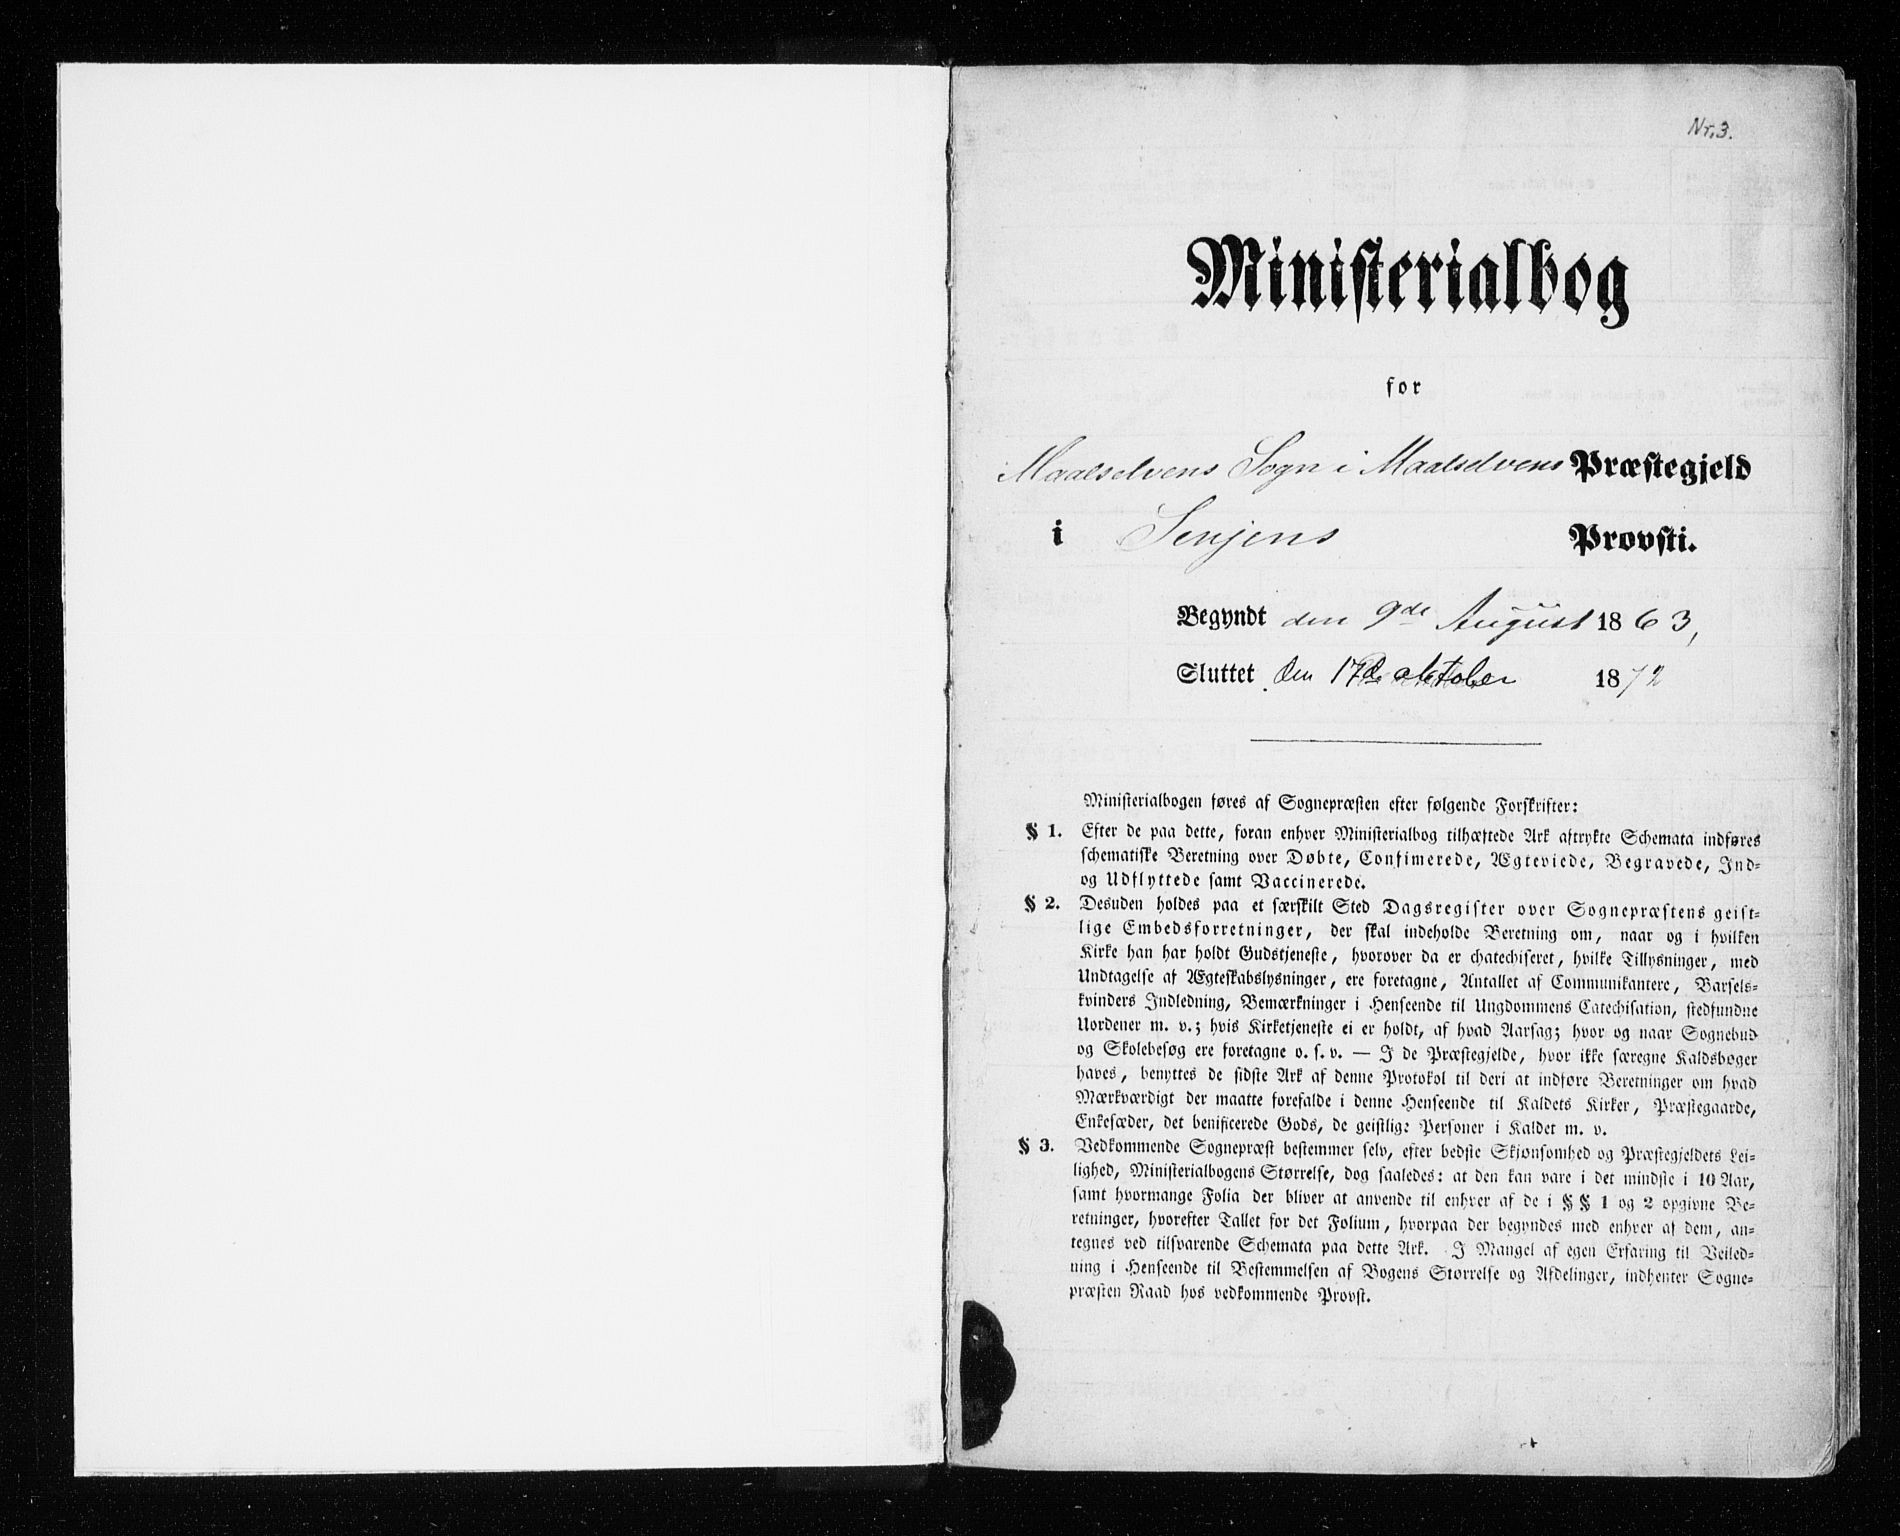 Nr. 3.
Ministerialbog
for
Maalselvens Sogn i Maalselvens Præstegjeld
i Senjens Provsti.
Begyndt den 9de August 1863,
Sluttet den 17de oktober 1872
Ministerialbogen føres af Sognepræsten efter følgende Forskrifter:
§ 1. Efter de paa dette, foran enhver Ministerialbog tilhæftede Ark aftrykte Schemata indføres
schematiske Beretning over Døbte, Confimerede, Ægteviede, Begravede, Ind-
og Udflyttede samt Vaccinerede.
§ 2. Desuden holdes paa et særskilt Sted Dagsregister over Sognepræstens geist-
lige Embedsforretninger, der skal indeholde Beretning om, naar og i hvilken
Kirke han har holdt Gudstjeneste, hvorover da er chatechiseret, hvilke Tillysninger, med
Undtagelse af Ægteskabslysninger, ere foretagne, Antallet af Communikantere, Barsels-
kvinders Indledning, Bemærkninger i Henseende til Ungdommens Catechisation, stedfundne
Uordener m. v.; hvis Kirketjeneste ei er holdt, af hvad Aarsag; hvor og naar Sognebud
og Skolebesøg ere foretagne o. s. v. — I de Præstegjelde, hvor ikke særegne Kaldsbøger
haves, benyttes de sidste Ark af denne Protokol til deri at indføre Beretninger om hvad
Mærkværdigt der maatte forefalde i denne Henseende til Kaldets Kirker, Præstegaarde,
Enkesæder, det benificerede Gods, de geistlige Personer i Kaldet m. v.
§ 3. Vedkommende Sognepræst bestemmer selv, efter bedste Skjønsomhed og Præstegjeldets Lei-
lighed, Ministerialbogens Størrelse, dog saaledes: at den kan vare i det mindste i 10 Aar,
samt hvormange Folia der bliver at anvende til enhver af de i §§ 1 og 2 opgivne Be-
retninger, hvorefter Tallet for det Folium, hvorpaa der begyndes med enhver af dem, an-
tegnes ved tilsvarende Schemata paa dette Ark. I Mangel af egen Erfaring til Veiled-
ning i Henseende til Bestemmelsen af Bogens Størrelse og Afdelinger, indhenter Sogne-
præsten Raad hos vedkommende Provst.